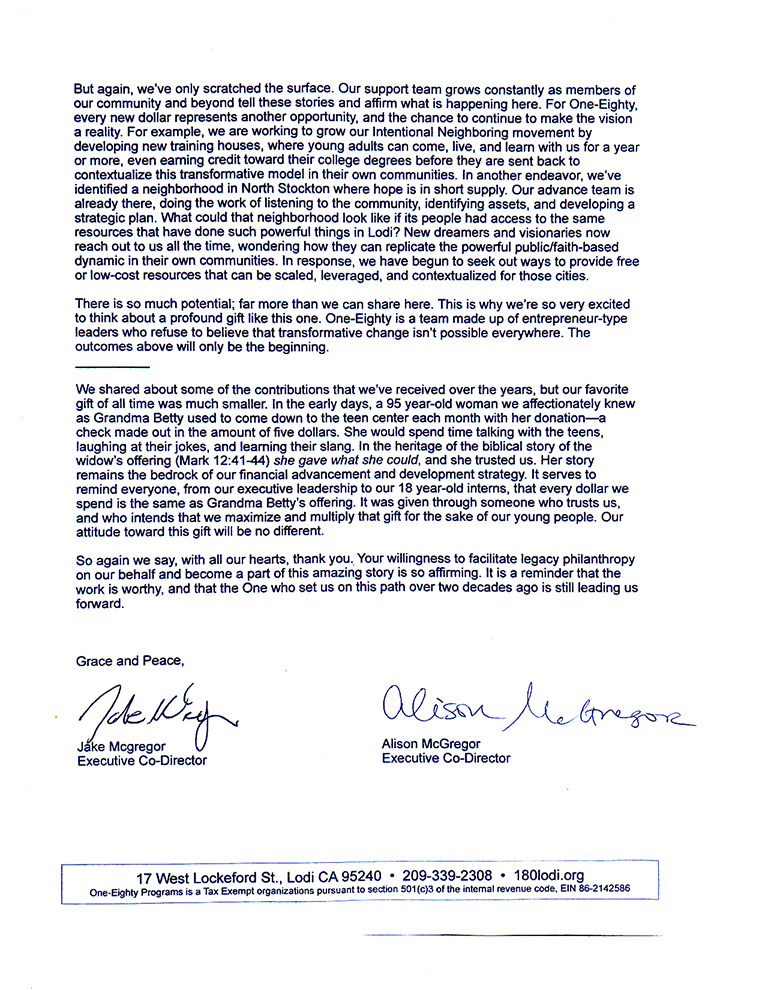 But again, we've only scratched the surface. Our support team grows constantly as members of
our community and beyond tell these stories and affirm what is happening here. For One-Eighty,
every new dollar represents another opportunity, and the chance to continue to make the vision
a reality. For example, we are working to grow our Intentional Neighboring movement by
developing new training houses, where young adults can come, live, and learn with us for a year
or more, even earning credit toward their college degrees before they are sent back to
contextualize this transformative model in their own communities. In another endeavor, we've
identified a neighborhood in North Stockton where hope is in short supply. Our advance team is
already there, doing the work of listening to the community, identifying assets, and developing a
strategic plan. What could that neighborhood look like if its people had access to the same
resources that have done such powerful things in Lodi? New dreamers and visionaries now
reach out to us all the time, wondering how they can replicate the powerful public/faith-based
dynamic in their own communities. In response, we have begun to seek out ways to provide free
or low-cost resources that can be scaled, leveraged, and contextualized for those cities.
There is so much potential; far more than we can share here. This is why we're so very excited
to think about a profound gift like this one. One-Eighty is a team made up of entrepreneur-type
leaders who refuse to believe that transformative change isn't possible everywhere. The
outcomes above will only be the beginning.
We shared about some of the contributions that we've received over the years, but our favorite
gift of all time was much smaller. In the early days, a 95 year-old woman we affectionately knew
as Grandma Betty used to come down to the teen center each month with her donation—a
check made out in the amount of five dollars. She would spend time talking with the teens,
laughing at their jokes, and learning their slang. In the heritage of the biblical story of the
widow's offering (Mark 12:41-44) she gave what she could, and she trusted us. Her story
remains the bedrock of our financial advancement and development strategy. It serves to
remind everyone, from our executive leadership to our 18 year-old interns, that every dollar we
spend is the same as Grandma Betty's offering. It was given through someone who trusts us,
and who intends that we maximize and multiply that gift for the sake of our young people. Our
attitude toward this gift will be no different.
So again we say, with all our hearts, thank you. Your willingness to facilitate legacy philanthropy
on our behalf and become a part of this amazing story is so affirming. It is a reminder that the
work is worthy, and that the One who set us on this path over two decades ago is still leading us
forward.
Grace and Peace,
Alison McGregor
Jake Mcgregor
Executive Co-Director
Alison McGregor
Executive Co-Director
17 West Lockeford St., Lodi CA 95240 • 209-339-2308 • 180lodi.org
One-Eighty Programs is a Tax Exempt organizations pursuant to section 501(c)3 of the internal revenue code, EIN 86-2142586